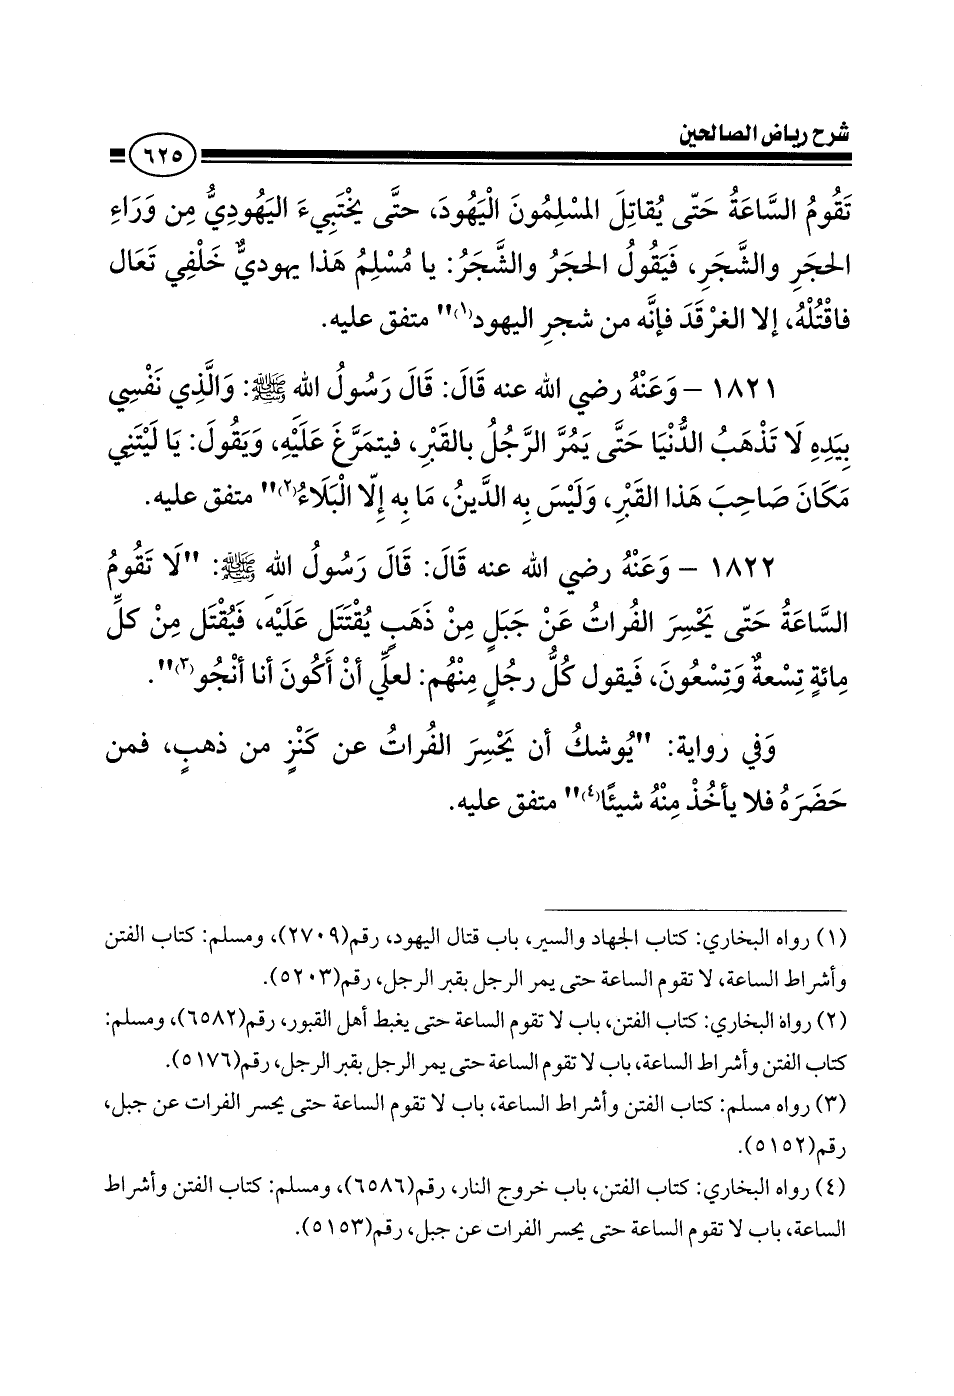 شرح رياض الصالحين
٦٢٥
تَقُومُ السَّاعَةُ حَتّى يُقاتِلَ المسْلِمُونَ الْيَهُودَ، حتَّى يخْتَبِيءَ اليَهُودِيُّ مِن وَرَاءِ
الحجَرِ والشَّجَرِ، فَيَقُولُ الحجَرُ والشَّجَرُ: يا مُسْلِمُ هَذا يهوديٌّ خَلْفِي تَعَال
فاقْتُلْهُ، إلا الغرْقَدَ فإنَّه من شجرِ اليهود(١)" متفق عليه.
١٨٢١ – وَعَنْهُ رضي الله عنه قَالَ: قَالَ رَسُولُ الله ﷺ: وَالَّذِي نَفْسِي
بِيَدِهِ لَا تَذْهَبُ الدُّنْيَا حَتَّى يَمُرَّ الرَّجُلُ بالقَبْرِ، فيتمَرَّغَ عَلَيْهِ، وَيَقُولَ: يَا لَيْتَنِي
مَكَانَ صَاحِبَ هَذا القَبْرِ، وَلَيْسَ بِه الدَّينُ، مَا بِه إِلّا الْبَلَاءُ(٢)" متفق عليه.
١٨٢٢ – وَعَنْهُ رضي الله عنه قَالَ: قَالَ رَسُولُ الله ﷺ: "لَا تَقُومُ
السَّاعَةُ حَتّى يَحْسِرَ الفُراتُ عَنْ جَبَلٍ مِنْ ذَهَبٍ يُقْتَتَل عَلَيْه، فَيُقْتَل مِنْ كلِّ
مِائةٍ تِسْعةٌ وَتِسْعُونَ، فَيقول كُلُّ رجُلٍ مِنْهُم: لعلِّي أنْ أَكُونَ أنا أنْجُو(٣)".
وَفي رواية: "يُوشكُ أن يَحْسِرَ الفُراتُ عن كَنْزٍ من ذهبٍ، فمن
حَضَرَهُ فلا يأخُذْ مِنْهُ شيئًا(٤)" متفق عليه.
(١) رواه البخاري: كتاب الجهاد والسير، باب قتال اليهود، رقم(٢٧٠٩)، ومسلم: كتاب الفتن
وأشراط الساعة، لا تقوم الساعة حتى يمر الرجل بقبر الرجل، رقم(٥٢٠٣).
(٢) رواه البخاري: كتاب الفتن، باب لا تقوم الساعة حتى يغبط أهل القبور، رقم(٦٥٨٢)، ومسلم:
كتاب الفتن وأشراط الساعة، باب لا تقوم الساعة حتى يمر الرجل بقبر الرجل، رقم(٥١٧٦).
(٣) رواه مسلم: كتاب الفتن وأشراط الساعة، باب لا تقوم الساعة حتى يحسر الفرات عن جبل،
رقم(٥١٥٢).
(٤) رواه البخاري: كتاب الفتن، باب خروج النار، رقم(٦٥٨٦)، ومسلم: كتاب الفتن وأشراط
الساعة، باب لا تقوم الساعة حتى يحسر الفرات عن جبل، رقم(٥١٥٣).